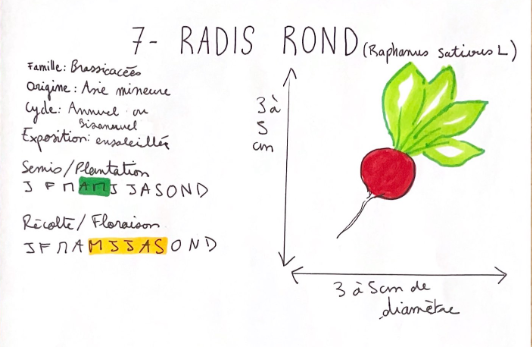 7- RADIS ROND (Raphanus sativus L)
Famille: Brassicacées
Origine: Asie mineure
Cycle: Annuel ou
Bisannuel
Exposition: ensoleillée
Semis/Plantation
J F M A M J J A S O N D
Récolte/Floraison
J F M A M J J A S O N D
3 à
5
cm
3 à 5cm de
diamètre